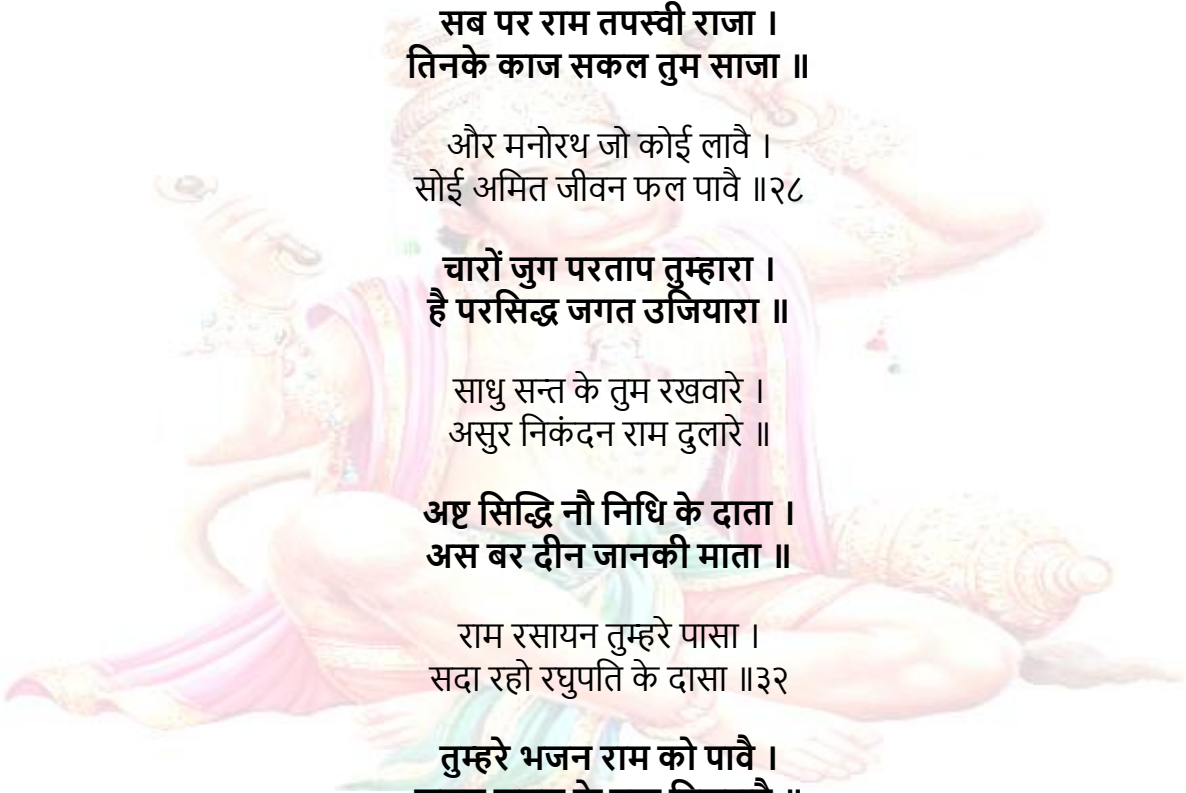 सब पर राम तपस्वी राजा ।
तिनके काज सकल तुम साजा ॥
और मनोरथ जो कोई लावै ।
सोई अमित जीवन फल पावै ॥२८
चारों जुग परताप तुम्हारा ।
है परसिद्ध जगत उजियारा ॥
साधु सन्त के तुम रखवारे ।
असुर निकंदन राम दुलारे ॥
अष्ट सिद्धि नौ निधि के दाता ।
अस बर दीन जानकी माता ॥
राम रसायन तुम्हरे पासा ।
सदा रहो रघुपति के दासा ॥३२
तुम्हरे भजन राम को पावै ।